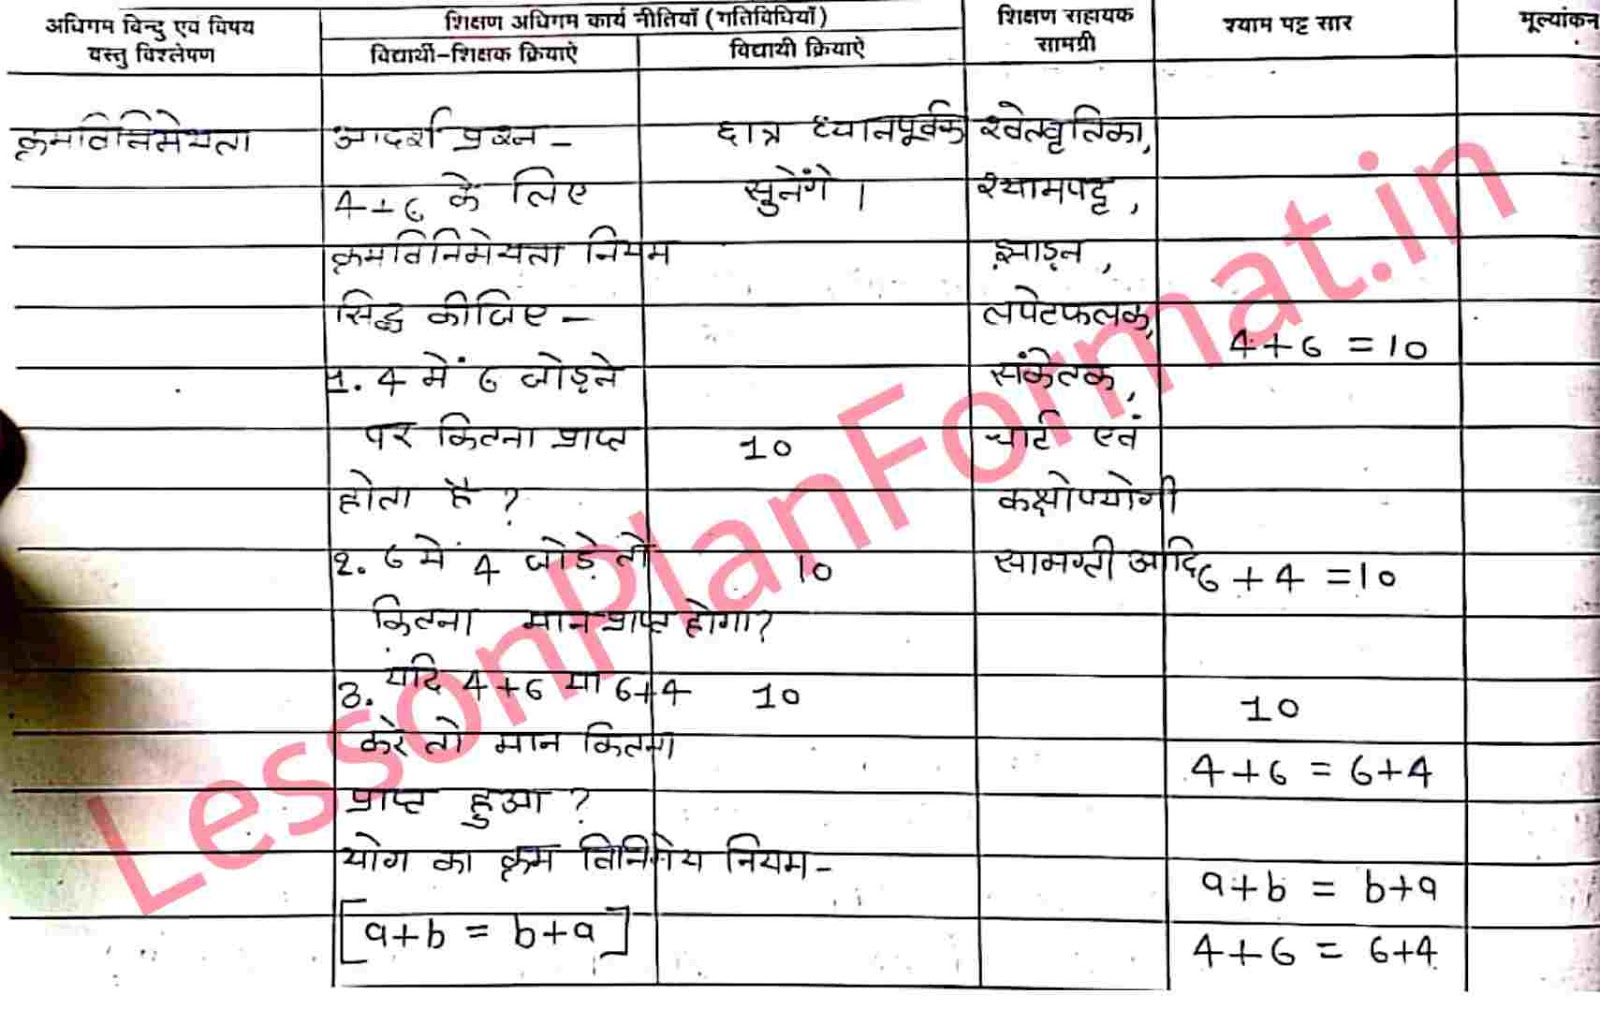 अधिगम विन्दु एवं विषय वस्तु विश्लेषण
शिक्षण अधिगम कार्य नीतियाँ (गतिविधियाँ)
विद्यार्थी-शिक्षक क्रियाऐं
विद्यार्थी क्रियाऐं
शिक्षण सहायक सामग्री
श्याम पट्ट सार
मूल्यांकन
क्रमविनिमेयता
आदर्श प्रश्न -
4+6 के लिए
क्रमविनिमेयता नियम
सिद्ध कीजिए -
1. 4 में 6 जोड़ने
पर कितना प्राप्त
होता है ?
2. 6 में 4 जोड़े तो
कितना मान प्राप्त होगा?
3. यदि 4+6 या 6+4
करे तो मान कितना
प्राप्त हुआ ?
योग का क्रम विनिमेय नियम-
[a+b = b+a]
छात्र ध्यानपूर्वक
सुनेंगे ।
10
10
10
श्वेतवृतिका,
श्यामपट्ट ,
झाड़न ,
लपेटफलक,
संकेतक,
चार्ट एवं
कक्षोपयोगी
सामग्री आदि
4+6 = 10
6+4 =10
10
4+6 = 6+4
a+b = b+a
4+6 = 6+4
LessonPlanFormat.in